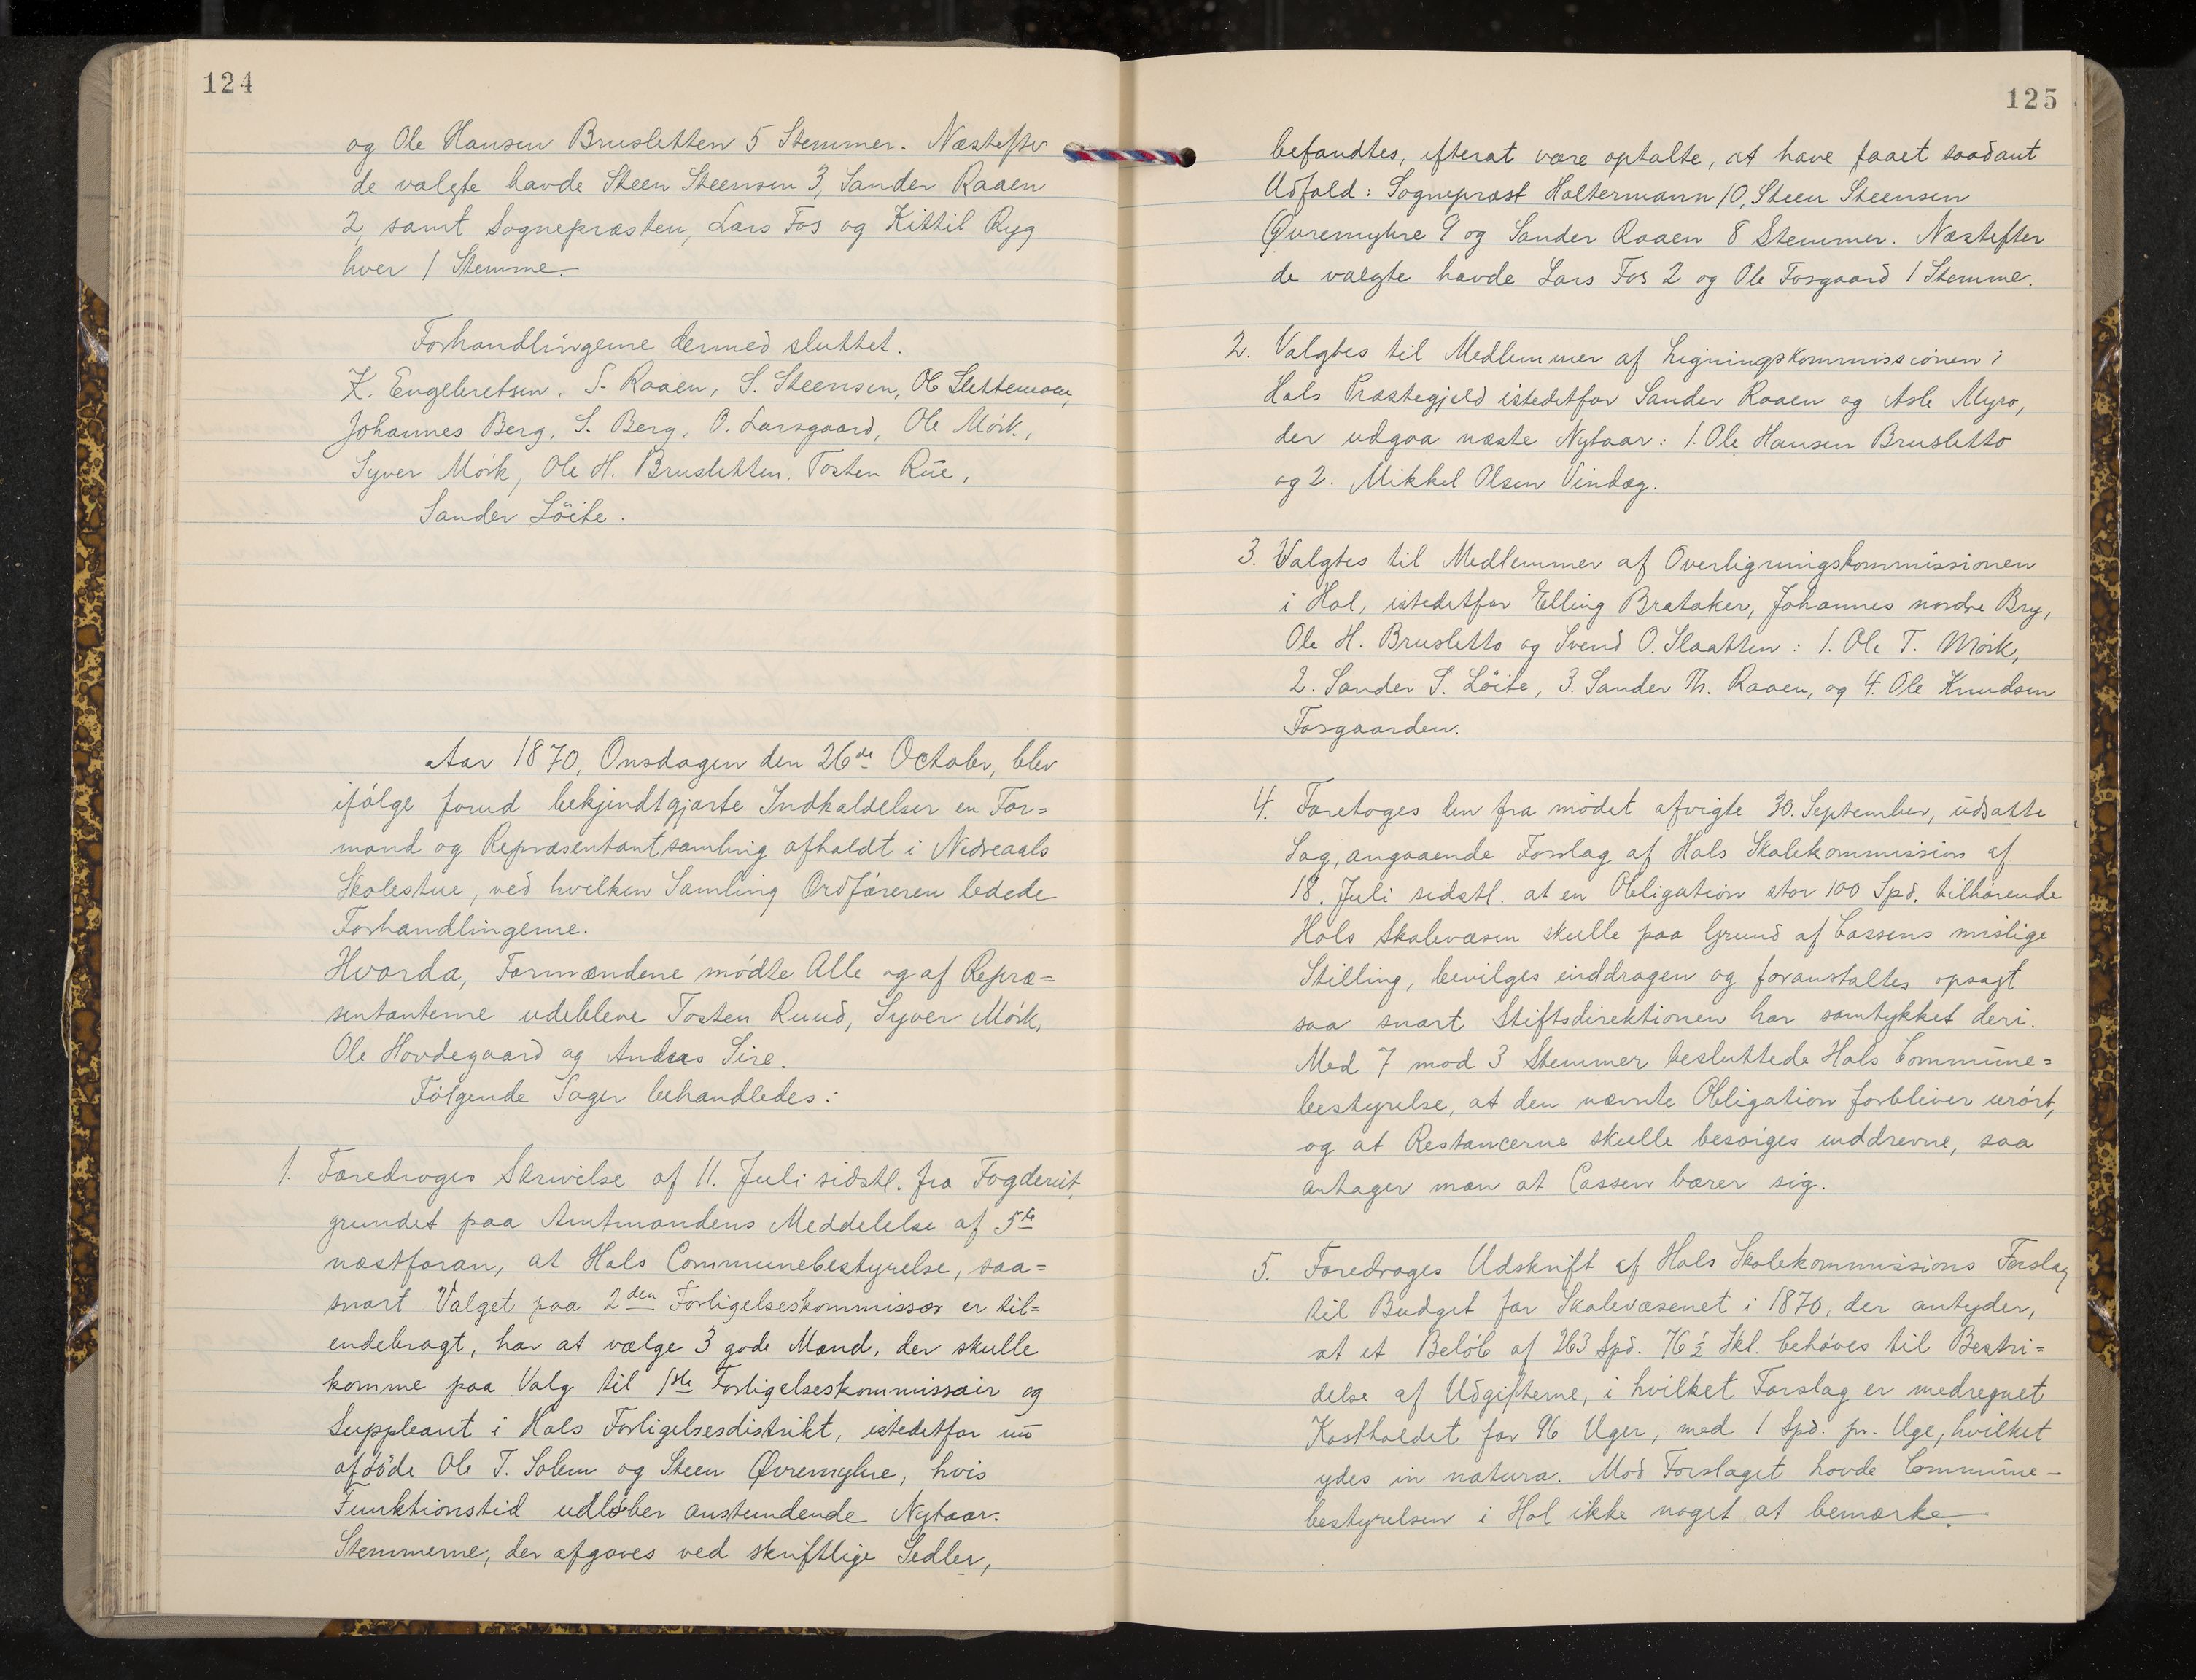 124
og Ole Hansen Brusletten 5 Stemmer. Næstefter
de valgte havde Steen Steensen 3, Sander Raaen
2, samt Sognepræsten, Lars Fos og Kittil Ryg
hver 1 Stemme.
Forhandlingerne dermed sluttet.
K. Engebretsen. S. Raaen, S. Steensen, Ole Slettemoen,
Johannes Berg, S. Berg, O. Larsgaard, Ole Mørk,
Syver Mørk, Ole H. Brusletten, Tosten Rue,
Sander Löite.
Aar 1870, Onsdagen den 26de October, blev
ifølge forud bekjendtgjorte Indkaldelser en For=
mand og Repræsentantsamling afholdt i Nedreaals
Skolestue, ved hvilken Samling Ordføreren ledede
Forhandlingerne.
Hvorda, Formændene mødte Alle og af Repræ=
sentanterne udebleve Tosten Ruud, Syver Mørk,
Ole Hovdegaard og Andreas Sire.
Følgende Sager behandledes:
1. Foredroges Skrivelse af 11. Juli sidstl. fra Fogderiet,
grundet paa Amtmandens Meddelelse af 5te
næstforan, at Hols Communebestyrelse, saa=
snart Valget paa 2den Forligelseskommissær er til=
endebragt, har at vælge 3 gode Mænd, der skulle
komme paa Valg til 1ste Forligelseskommissair og
Suppleant i Hols Forligelsesdistrikt, istedetfor nu
afdöde Ole T. Solem og Steen Øvremyhre, hvis
Funktionstid udløber anstundende Nytaar.
Stemmerne, der afgaves ved skriftlige Sedler,
125
befandtes, efterat være optalte, at have faaet saadant
Udfald: Sogneprast Holtermann 10, Steen Steensen
Øvremyhre 9 og Sander Raaen 8 Stemmer. Næstefter
de valgte havde Lars Fos 2 og Ole Fosgaard 1 Stemme.
2. Valgtes til Medlemmer af Ligningskommissionen i
Hols Præstegjeld istedetfor Sander Raaen og Asle Myro,
der udgaa næste Nytaar: 1. Ole Hansen Brusletto
og 2. Mikkel Olsen Vindæg.
3. Valgtes til Medlemmer af Overligningskommissionen
i Hol, istedetfor Elling Brataker, Johannes nordre Bry,
Ole H. Brusletto og Svend O. Slaatten: 1. Ole T. Mørk,
2. Sander S. Löite, 3. Sander Th. Raaen, og 4. Ole Knudsen
Fosgaarden.
4. Foretoges den fra mödet afvigte 30. September, udsatte
Sag, angaaende Forslag af Hols Skolekommission af
18. Juli sidstl. at en Obligation stor 100 Spd. tilhørende
Hols Skolevæsen skulle paa Grund af Cassens mislige
Stilling, bevilges inddragen og foranstaltes opsagt
saa snart Stiftsdirektionen har samtykket deri.
Med 7 mod 3 Stemmer besluttede Hols Commune=
bestyrelse, at den nævnte Obligation forbliver urørt,
og at Restancerne skulle besørges inddrevne, saa
antager man at Cassen bærer sig.
5. Foredroges Udskrift af Hols Skolekommissions Forslag
til Budget for Skolevæsenet i 1870, der antyder,
at et Beløb af 263 Spd. 76½ Skl. behøves til Bestri=
delse af Udgifterne, i hvilket Forslag er medregnet
Kostholdet for 96 Uger, med 1 Spd. pr. Uge, hvilket
ydes in natura. Mod Forslaget havde Commune-
bestyrelsen i Hol ikke noget at bemærke.